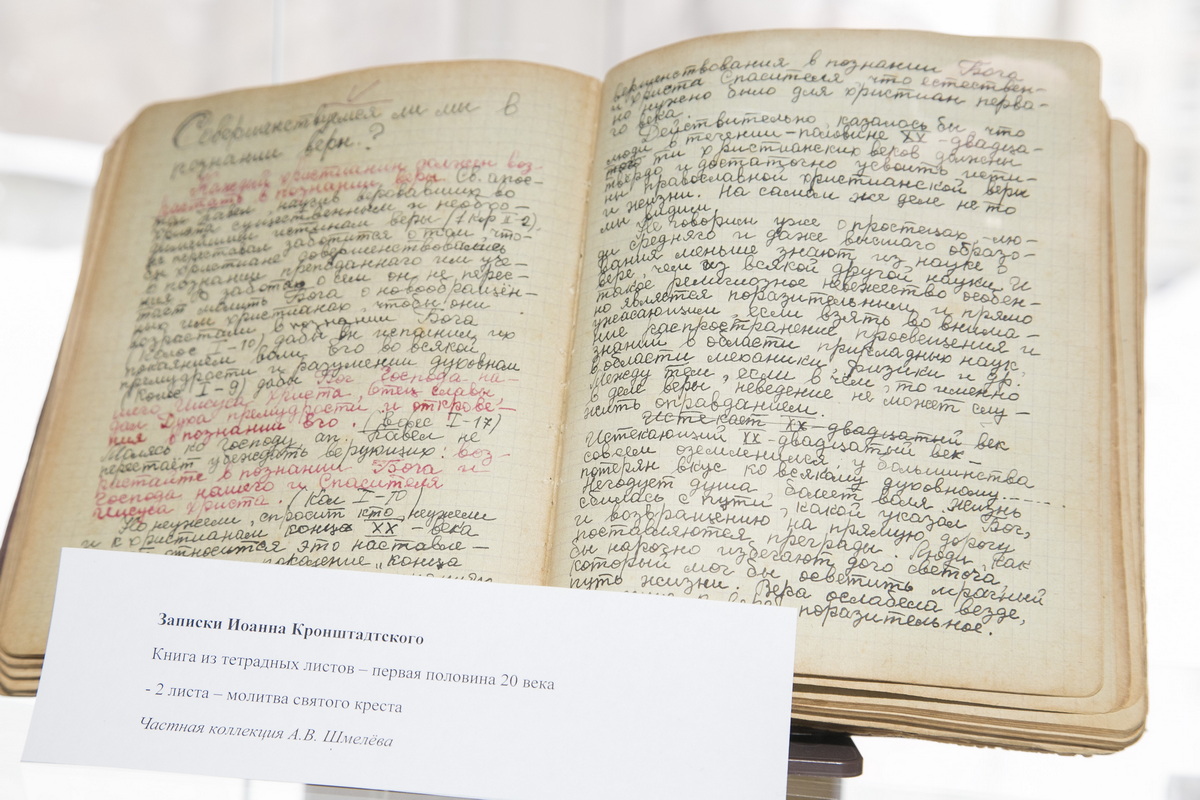 Совершенствуемся ли мы в
познании веры?
Каждый христианин должен воз-
растать в познании веры. Св. апос-
тол Павел научив уверовавших во
Христа существенным и необхо-
димейшим истинам веры (1 Кор X-2).
не переставал заботится о том что-
бы христиане довершенствовались
в познании преподаннаго им уче-
ния. В заботах о сем он не перес-
тает молить Бога о новообращён-
ных им христианах, чтобы они
возрастали в познании Бога
(Колос I-10) дабы Он исполнил их
познанием воли Его во всякой
премудрости и разумении духовном
(Колос I-9) дабы Бог Господа на-
шего Иисуса Христа, Отец славы,
дал Духа премудрости и открове-
ния в познании Его. (Ефес I-17)
Молясь ко Господу, ап. Павел не
перестаёт убеждать верующих: воз-
растайте в познании Бога и
Господа нашего и Спасителя
Иисуса Христа. (Кол I-10)
Но неужели, спросит кто, неужели
и к христианам конца XX - века
относится это наставле-
поколение „конца
вершенствования в познании Бога
и Христа Спасителя, что естествен-
но нужно было для христиан перва-
го века.
Действительно, казалось бы, что
люди в течении - половине XX - двадца-
того ти христианских веков должны
твердо и достаточно усвоить исти-
ны православной христианской веры
и жизни. На самом же деле не то
мы видим.
Не говорим уже о простецах, - лю-
ди среднего и даже высшаго образо-
вания меньше знают из науке о
вере, чем из всякой другой науки. И
такое религиозное невежество особен-
но является поразительным и прямо
ужасающим, если взять во внима-
ние распространение просвещения и
знаний в области прикладных наук,
в области механики, физики и др.
Между тем, если в чем, то именно
в деле веры, неведение не может слу-
жить оправданием.
Истекает XX - двадцатый век
Истекающий XX - двадцатый век -
совсем оземленился, у большинства
потерян вкус ко всякому духовному.....
Негодует душа, болеет воля. Жизнь
сбилась с пути, какой указал Бог,
и возвращению на прямую дорогу
поставляются преграды. Люди, как
бы нарозно избегают того светоча,
который мог бы осветить мрачный
путь жизни. Вера ослабела везде,
поразительное.
Записки Иоанна Кронштадтского
Книга из тетрадных листов – первая половина 20 века
- 2 листа – молитва святого креста
Частная коллекция А.В. Шмелёва